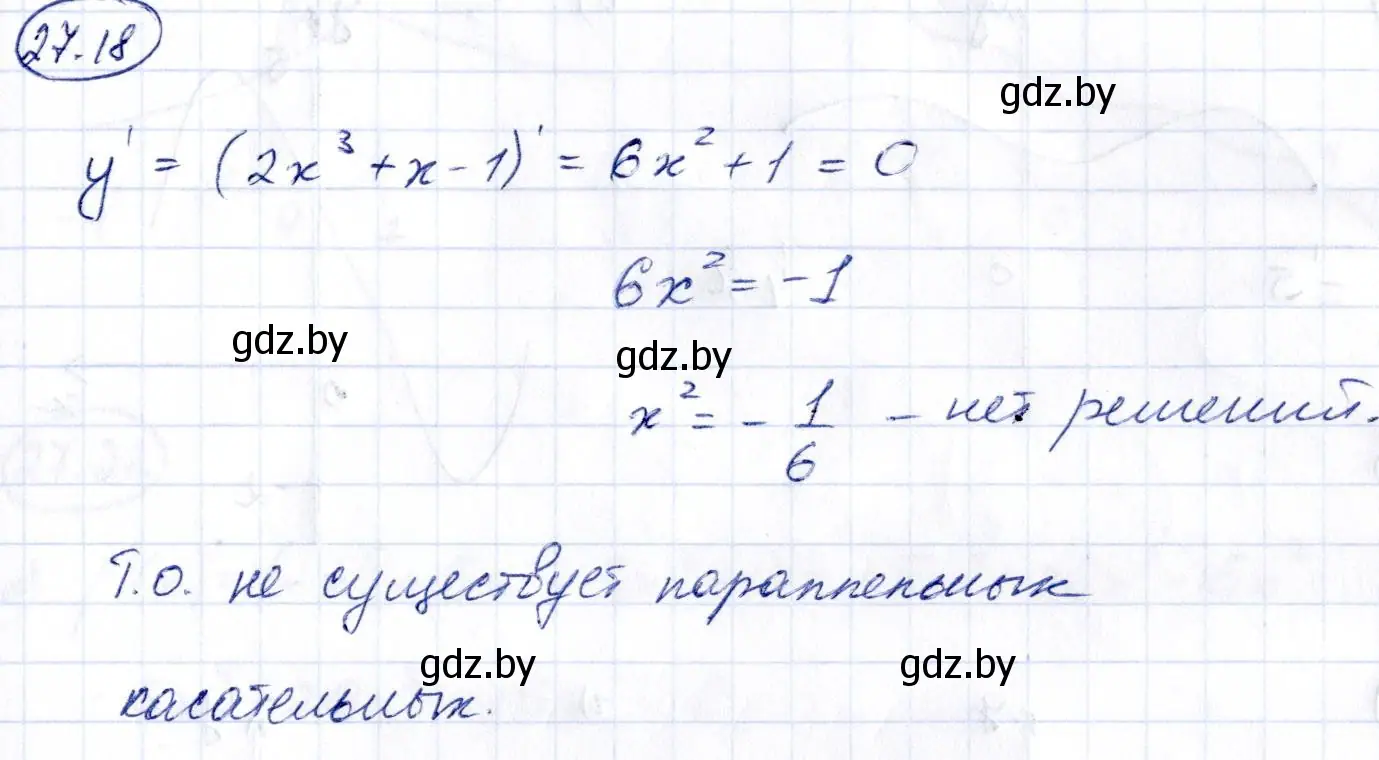 27.18
gdz.by
y' = (2x³ + x - 1)' = 6x² + 1 = 0
6x² = -1
gdz.by
gdz.by
x² = - 1/6 - нет решений.
Т.о. не существует параллельных
gdz.by gdz.by
касательных.